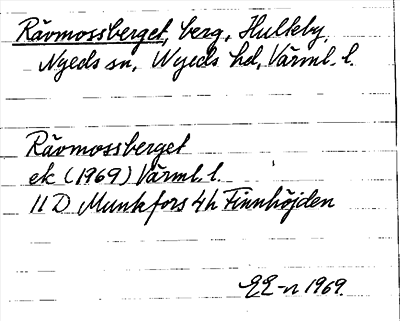 Rävmossberget, berg, Hulteby,
Nyeds sn, Nyeds hd, Värml. l.
Rävmossberget
ek (1969) Värml. l.
11 D Munkfors 4h Finnhöjden
EE-n 1969.